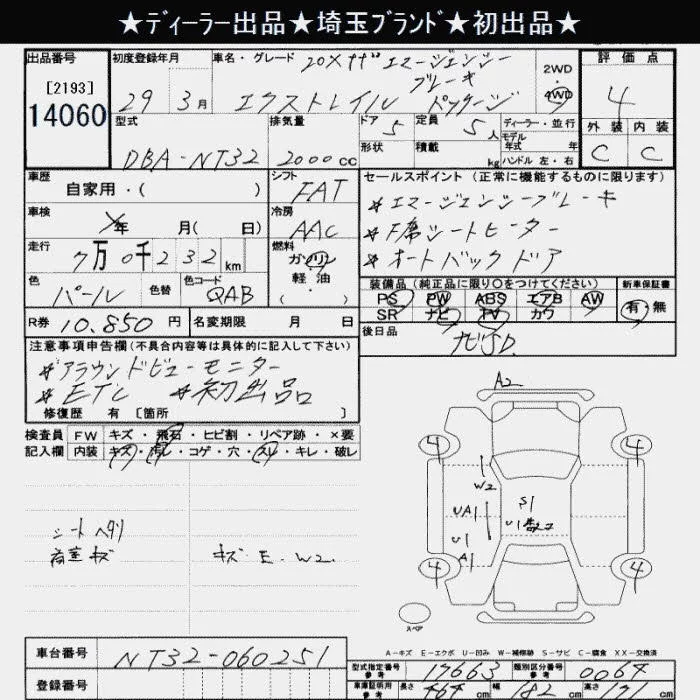 ★ディーラー出品★埼玉ブランド★初出品★
出品番号 初度登録年月 車名・グレード 20Xナビエマージェンシー 評価点
[2193] ブレーキ 2WD
14060 29 3月 エクストレイル パッケージ ・4WD 4
型式 排気量 ドア 5 定員 5人 ディーラー・並行 外装 内装
DBA-NT32 2000cc 形状 積載 kg モデル年式 年 ハンドル 左・右 C C
車歴 シフト セールスポイント(正常に機能するものに限ります)
自家用・( ) FAT ※エマージェンシーブレーキ
車検 年 月( 日) 冷房 AAC ※F席シートヒーター
走行 7万0千232km 燃料 ガソリン ※オートバックドア
色 パール 色替 色コード QAB 軽油・( ) 装備品(純正品に限り○をつけてください) 新車保証書
PS PW ABS エアB AW 有・無
R券 10.850円 名変期限 月 日 SR ナビ TV カワ
後日品 ナビSD.
注意事項申告欄(不具合内容等は具体的に記入して下さい)
※アラウンドビューモニター
※ETC ※初出品
修復歴 有 [箇所 ]
検査員 FW キズ・飛石・ヒビ割・リペア跡・×要
記入欄 内装 キズ・汚レ・コゲ・穴・スレ・キレ・破レ
A2
4 4
W2
UA1 S1
U1 U1
A1
4 4
シートヘタリ
荷室キズ キズ E.W2.
スペア
A-キズ E-エクボ U-凹み W-補修跡 S-サビ C-腐食 XX-交換済
車台番号 NT32-060251
型式指定番号 参考 17663 類別区分番号 参考 0064
登録番号 車庫証明用 参考 長さ 464cm 幅 182cm 高さ 171cm